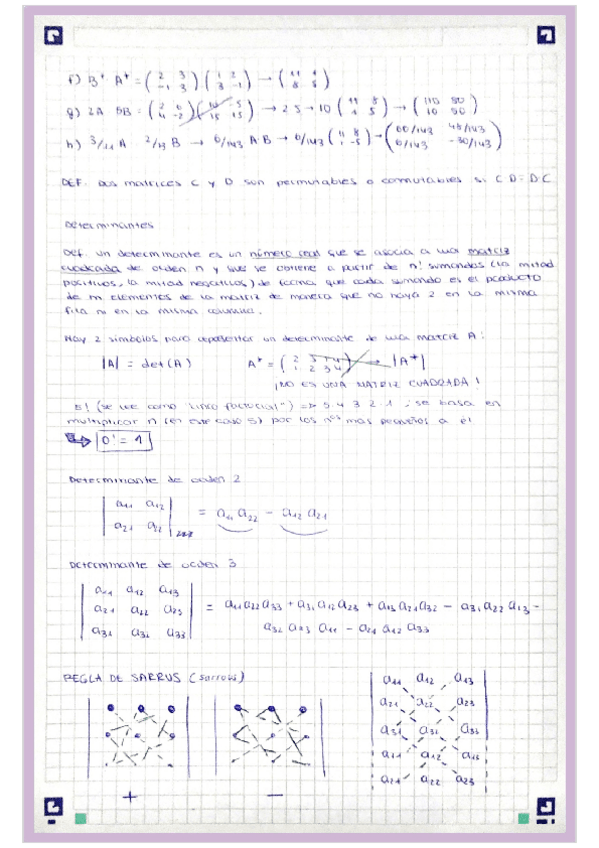 f) B^t A^t = (2 3 / -1 3) (1 2 / 3 -1) → (11 1 / 8 5)
g) 2A 5B = (2 6 / 4 -2) (10 5 / 15 15) → 2 5 → 10 (11 8 / 1 5) → (110 80 / 10 50)
h) 3/11 A 2/13 B → 6/143 A B → 6/143 (11 8 / 1 -5) → (66/143 48/143 / 6/143 -30/143)
DEF. Dos matrices C y D son permutables o conmutables si C D = D C
Determinantes
Def. un determinante es un número real que se asocia a una matriz
cuadrada de orden n y que se obtiene a partir de n! sumandos (la mitad
positivos, la mitad negativos) de forma que cada sumando es el producto
de n elementos de la matriz de manera que no haya 2 en la misma
fila ni en la misma columna.
Hay 2 símbolos para representar un determinante de una matriz A:
|A| = det(A) A^t = (2 3 1 4 / 1 2 3 4) → |A^t|
¡NO ES UNA MATRIZ CUADRADA!
5! (se lee como "cinco factorial") => 5 4 3 2 1 ; se basa en
multiplicar n (en este caso 5) por los nos mas pequeños a él
0! = 1
Determinante de orden 2
|a11 a12 / a21 a22| 2x2 = a11 a22 - a12 a21
Determinante de orden 3
|a11 a12 a13 / a21 a22 a23 / a31 a32 a33| = a11 a22 a33 + a31 a12 a23 + a13 a21 a32 - a31 a22 a13 -
a32 a23 a11 - a21 a12 a33
REGLA DE SARRUS (sarrous)
+ -
a11 a12 a13
a21 a22 a23
a31 a32 a33
a11 a12 a13
a21 a22 a23